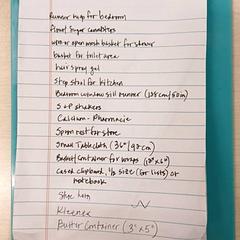 Runner help for bedroom
Flour/Sugar cannisters
wire or open mesh basket for shower
basket for toilet area
hair spray gel
Step stool for kitchen
Bedroom window sill runner (128cm/50in)
S+P shakers
Calcium - Pharmacie
Spoon rest for stove
Small Tablecloth (36"/90cm)
Basket/Container for wraps (12"x6")
Case clipboard, 1/2 size (for lists) or
notebook
Shoe horn
Kleenex
Butter Container (3"x5")